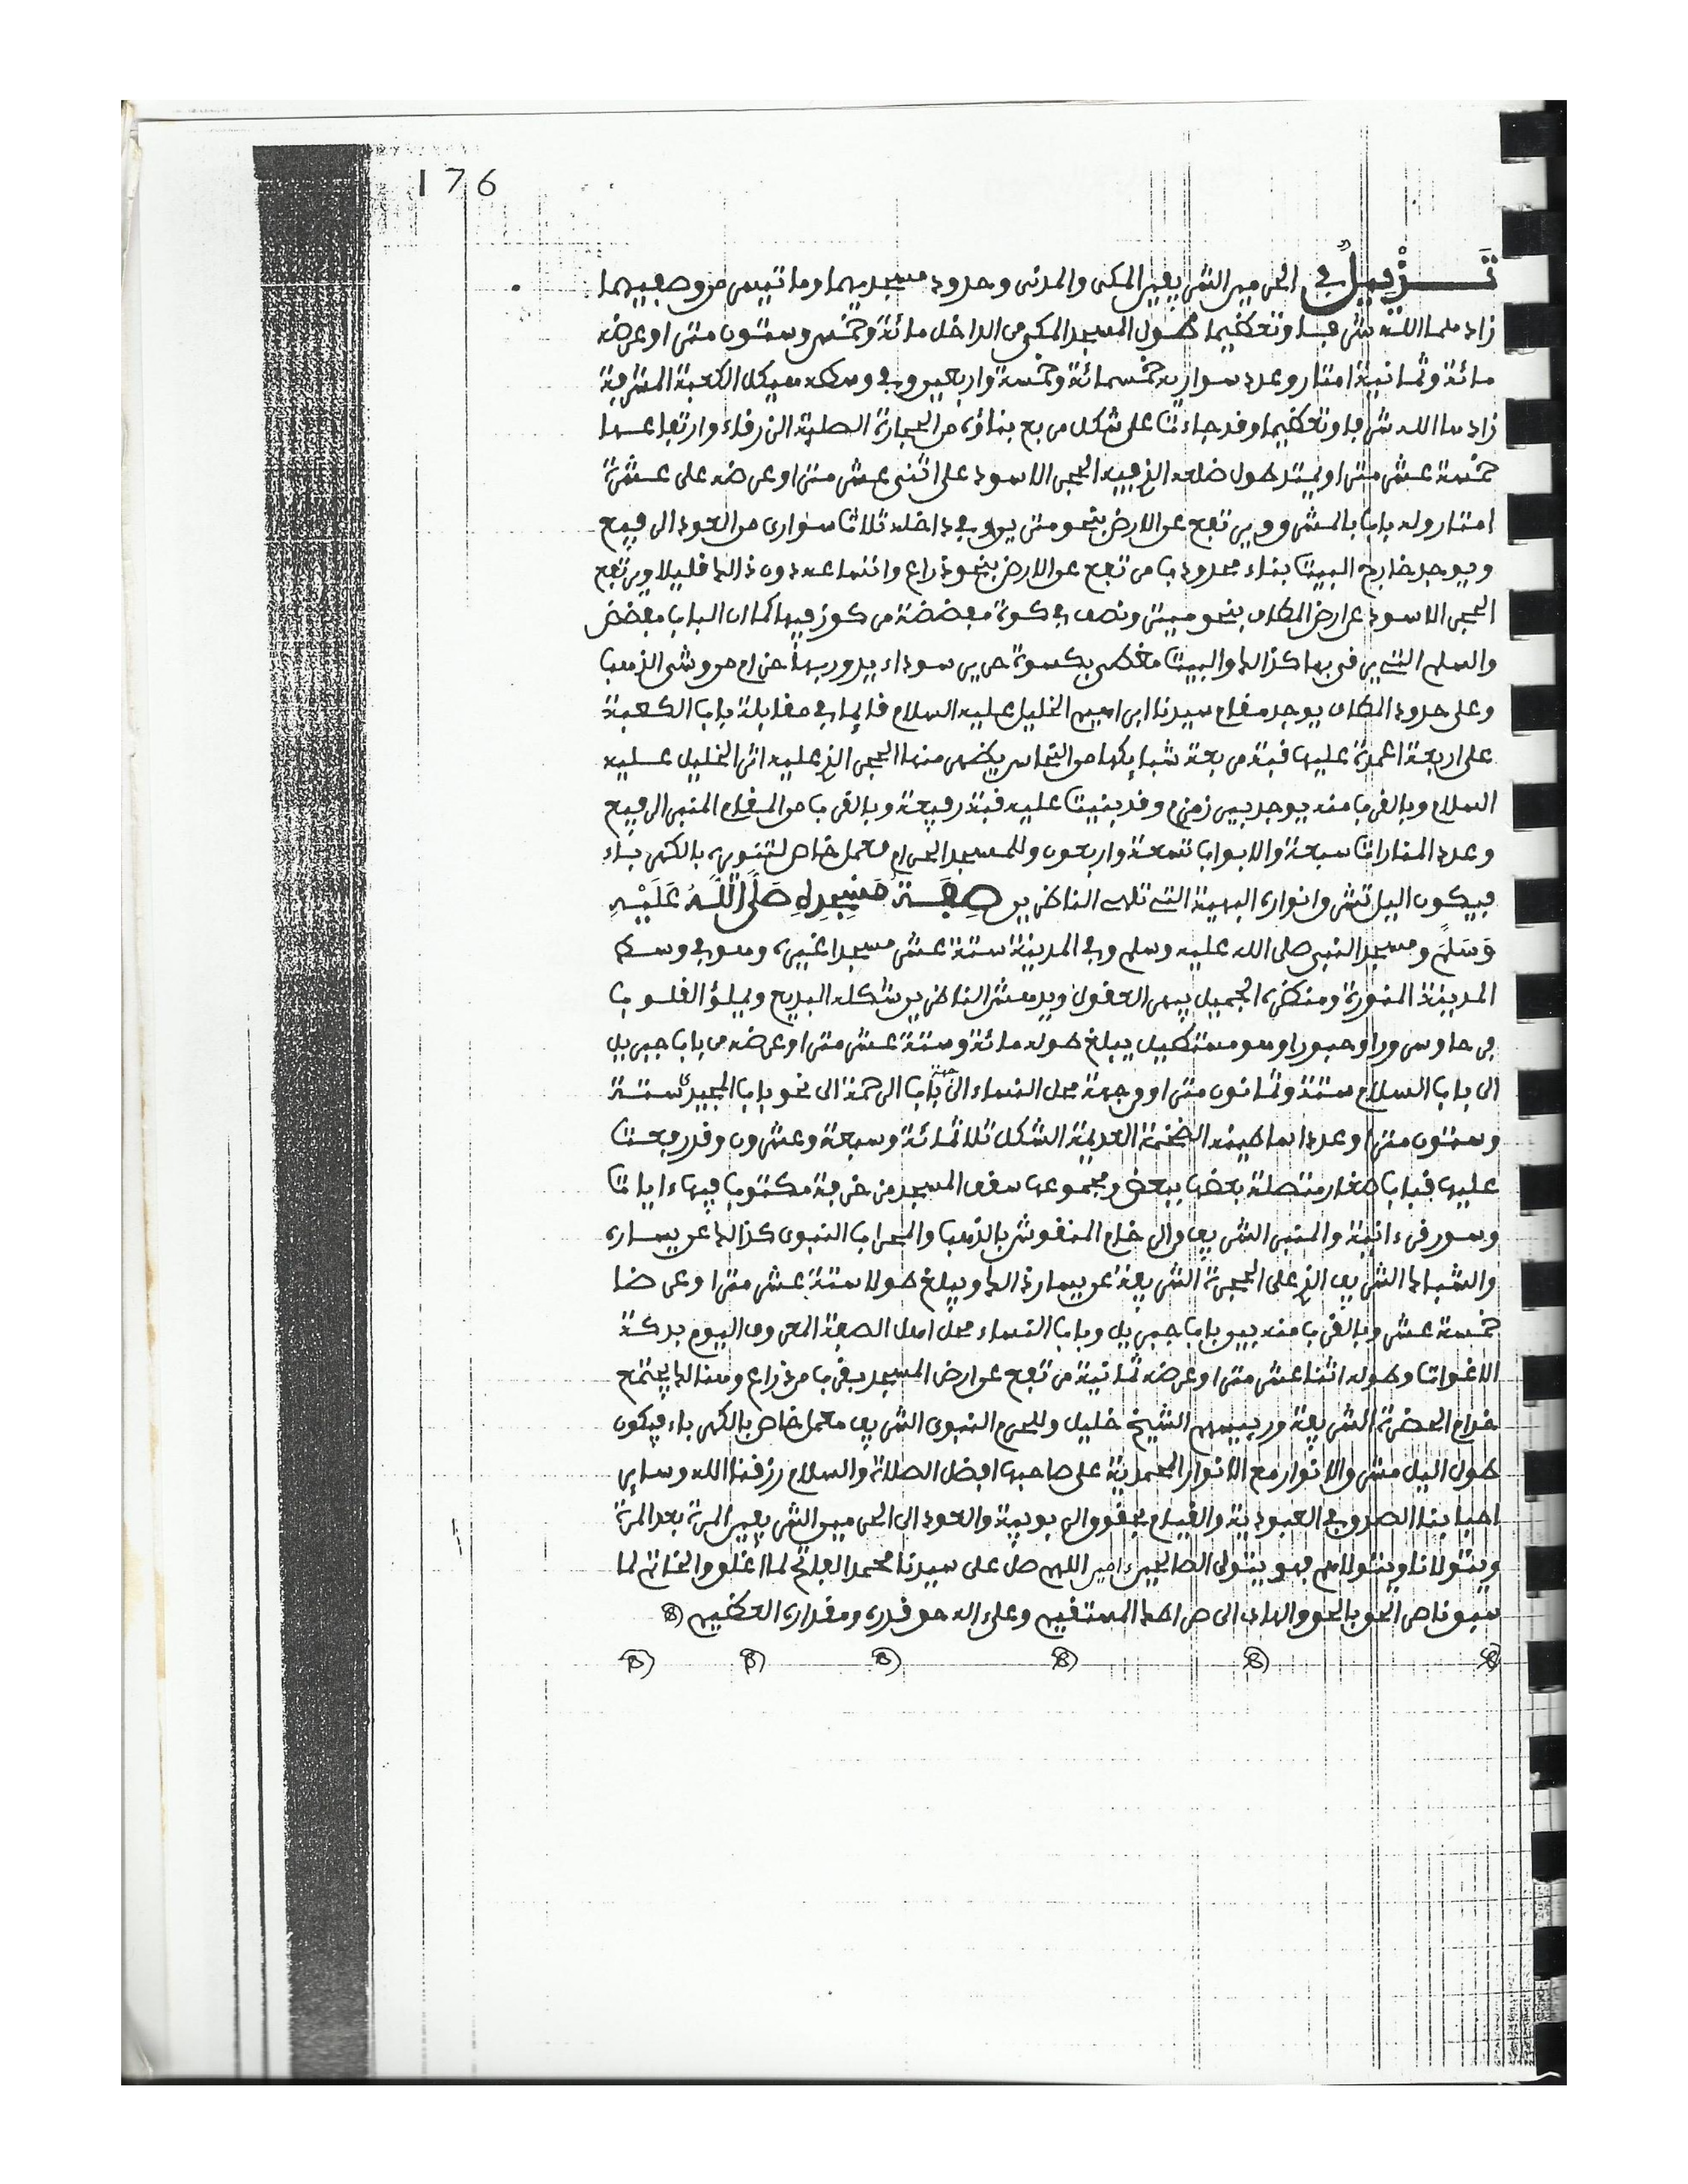 176
تَذْيِيلٌ في الحرمين الشريفين المكي والمدني وحدود مسجديهما وما تيسر من وصفيهما
زادهما الله شرفا وتعظيما طول المسجد المكي من الداخل مائة وخمس وستون مترا وعرضه
مائة وثمانية امتار وعدد سواريه خمسمائة وخمسة واربعين وفي وسطه هيكل الكعبة المشرفة
زادها الله شرفا وتعظيما وقد جاءت على شكل مربع بناؤه من الحجارة الصلبة الزرقاء وارتفاعها
خمسة عشر مترا ويمتد طول ضلعه الذي فيه الحجر الاسود على اثنى عشر مترا وعرضه على عشرة
امتار وله باب بالمشرق ويرتفع عن الارض بنحو مترين وفي داخله ثلاث سوارى من العود الرفيع
ويوجد خارج البيت بناء محدودب مرتفع عن الارض بنحو ذراع واتساعه دون ذالك قليلا ويرتفع
الحجر الاسود عن ارض المطاف بنحو ميتر ونصف في كوة مفضضة مركوز فيها كما ان الباب مفضض
والسلم التي يرقى بها كذالك والبيت مغطى بكسوة حرير سوداء يدور بها حزام مروشى الذهب
وعلى حدود المطاف يوجد مقام سيدنا ابراهيم الخليل عليه السلام قائما في مقابلة باب الكعبة
على اربعة اعمدة عليها قبة مربعة شبابكها من النحاس يظهر منها الحجر الذي عليه اثر الخليل عليه
السلام وبالقرب منه يوجد بير زمزم وقد بنيت عليه قبة رفيعة وبالقرب من المقام المنبر الرفيع
وعدد المنارات سبعة والابواب تسعة واربعون وللمسجد الحرام معمل خاص لتنويره بالكهرباء
فيكون اليل تشرق انواره البهية التي تلهى الناظرين صِفَةُ مَسْجِدِهِ صَلَّى اللَّهُ عَلَيْهِ
وَسَلَّمَ ومسجد النبي صلى الله عليه وسلم وفي المدينة ستة عشر مسجدا غيره وهو في وسط
المدينة المنورة ومنظره الجميل يبهر العقول ويدهش الناظرين شكله البديع ويملؤ القلوب
فرحا وسرورا وحبورا وهو مستطيل يبلغ طوله مائة وستة عشر مترا وعرضه من باب جبريل
الى باب السلام ستة وثمانون مترا ومن جهة محل النساء الى جهة باب الرحمة الى نحو باب المجيدى ستة
وستون مترا وعدد اساطينه الضخمة العديمة الشكل ثلاثمائة وسبعة وعشرون وقد رفعت
عليها قباب صغار متصلة بعضها ببعض ومجموعها سقف المسجد مزخرفة مكتوب فيها ءايات
وسور قرءانية والمنبر الشريف والرخام المنقوش بالذهب والمحراب النبوى كذالك عن يساره
والشباك الشريف الذي على الحجرة الشريفة عن يسار ذالك ويبلغ طولا ستة عشر مترا وعرضا
خمسة عشر وبالقرب منه بين باب جبريل وباب النساء محل اهل الصفة المعروف اليوم بدكة
الاغوات وطوله اثنا عشر مترا وعرضه ثمانية مرتفع عن ارض المسجد بقرب من ذراع وهنالك يجتمع
خدام الحضرة الشريفة ورييسهم الشيخ خليل وللحرم النبوى الشريف معمل خاص بالكهرباء فيكون
طول اليل مشرق الانوار مع الانوار المحمدية على صاحبها افضل الصلاة والسلام رزقنا الله وساير
احبابنا الصدق في العبودية والقيام بحقوق الربوبية والعود الى الحرمين الشريفين المرة بعد المرة
ويتولانا ويتولاهم فهو يتولى الصالحين ءامين اللهم صل على سيدنا محمد الفاتح لما اغلق والخاتم لما
سبق ناصر الحق بالحق والهادى الى صراطك المستقيم وعلى ءاله حق قدره ومقداره العظيم